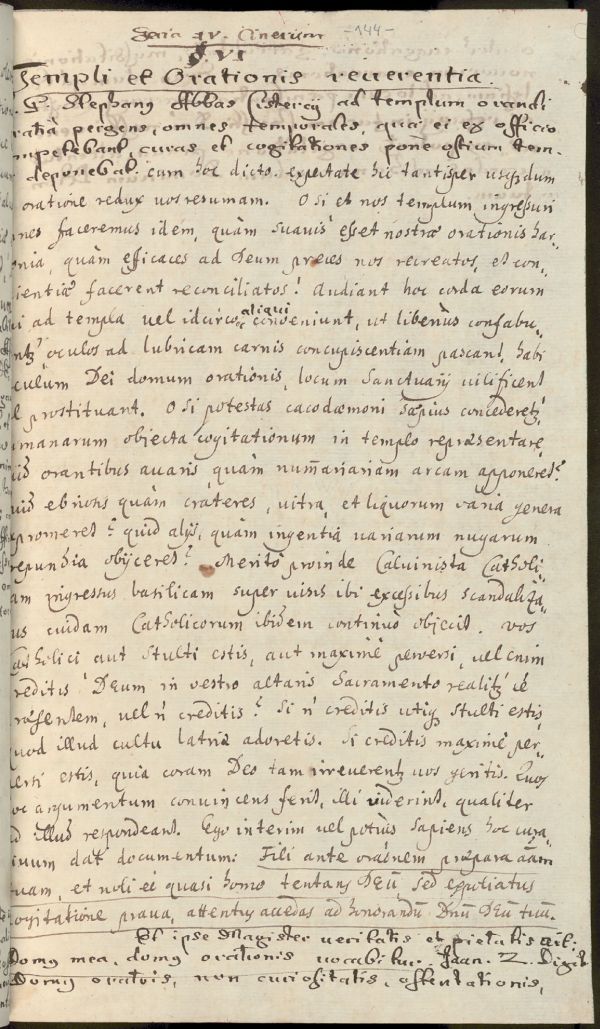 Feria IV. Cinerum -144-
§. VI
Templi et Orationis reverentia.
S. Stephanus Abbas Cistercij ad templum orandi
gratiâ pergens, omnes temporales, quae ei ex officio
competebant, curas et cogitationes pone ostium tem-
deponebat. cum hoc dicto. expectate hic tantisper usqdum
oratione redux vos resumam. O si et nos templum ingressuri
omnes faceremus idem, quàm suavis esset nostrae orationis har-
monia, quàm efficaces ad Deum preces nos recreatos, et con-
scientiae facerent reconciliatos! Audiant hoc corda eorum
qui ad templa vel idcirco aliqui conveniunt, ut liberiùs confabu-
lentz oculos ad lubricam carnis concupiscentiam pascant, habi
taculum Dei domum orationis, locum Sanctuarij vilificent
et prostituant. O si potestas cacodaemoni sapius concederetz
humanarum objecta cogitationum in templo repraesentare,
quid orantibus avaris, quàm num̄ariariam arcam apponeret?
quid ebriosis quàm crateres, vitra, et liquorum varia genera
expromeret? quid alijs, quàm ingentia variarum nugarum
objiceret? Meritò proinde Calvinista Catholi-
cam ingressus basilicam super visis ibi excessibus scandaliza-
tus cuidam Catholicorum ibidem continuò objecit. vos
Catholici aut stulti estis, aut maximè perversi, vel enim
creditis Deum in vestro altaris Sacramento realitz ēē
praesentem, vel n̄ creditis? Si n̄ creditis utiq stulti estis,
quod illud cultu latriae adoretis. Si creditis maximè per-
versi estis, quia coram Deo tam irreverentz vos geritis. Quos
hoc argumentum convincens ferit, illi viderint, qualiter
ad illud respondeant. Ego interim vel potiùs Sapiens hoc
dat documentum: Fili ante oraōnem praepara aām
tuam, et noli ēē quasi homo tentans Deū sed expoliatus
cogitatione prava, attentus accedas ad honorandū Dnū Deū tuū.
Et ipse Magister veritatis et pietatis ait:
Domus mea, domus orationis vocabitur. Joan. 2. Dixit
Domus orationis, non curiositatis, ostentationis,